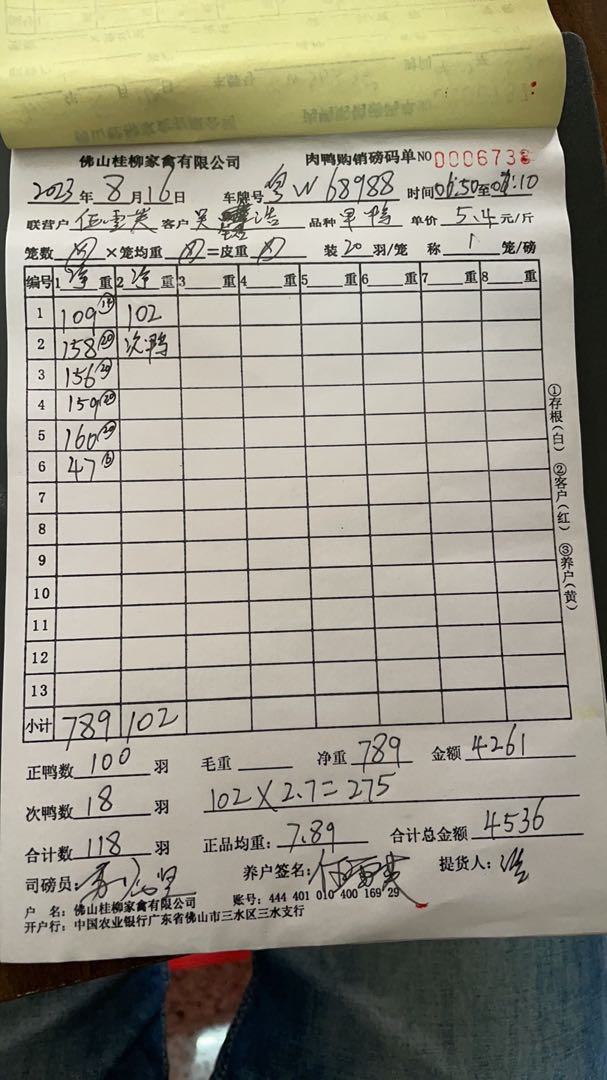 佛山桂柳家禽有限公司 肉鸭购销磅码单 NO 000673
2023年8月16日 车牌号 粤W68988 时间06:50至07:10
联营户 客户 吴 浩 品种 鸭 单价 5.4 元/斤
笼数 ×笼均重 =皮重 装 20 羽/笼 称 1 笼/磅
编号 1 净 重 2 净 重 3 重 4 重 5 重 6 重 7 重 8 重
1 109 102
2 158 20 次鸭
3 156 20
4 159 20
5 160 20
6 47 6
7
8
9
10
11
12
13
小计 789 102
①存根(白) ②客户(红) ③养户(黄)
正鸭数 100 羽 毛重 净重 789 金额 4261
次鸭数 18 羽 102×2.7=275
合计数 118 羽 正品均重: 7.89 合计总金额 4536
司磅员: 养户签名: 提货人: 浩
户 名: 佛山桂柳家禽有限公司 账号: 444 401 010 400 169 29
开户行: 中国农业银行广东省佛山市三水区三水支行